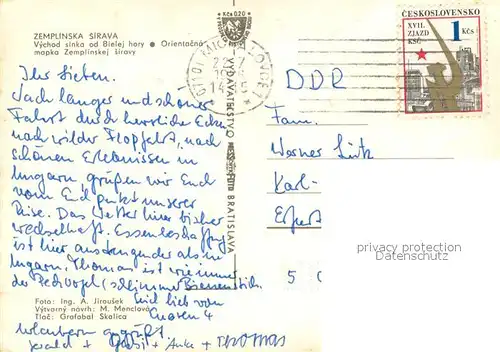 ZEMPLINSKA ŠÍRAVA
Východ slnka od Bielej hory ● Orientačná
mapka Zemplínskej šíravy
Kčs 0,20
VYDAVATEĽSTVO
BRATISLAVA
ČESKOSLOVENSKO
XVII.
ZJAZD
KSČ
1 Kčs
Ihr Lieben.
Nach langer und schöner
Fahrt durch herrliche Ecken
nach wilder Floßfahrt, nach
schönen Erlebnissen in
Ungarn, grüßen wir Euch
vom Endpunkt unserer
Reise. Das Wetter hier bisher
wechselhaft. Essenbeschaffung
ist hier anstrengender als in
Ungarn. Thomas ist wie immer
der Pechvogel (schlimmer Bienenstich.
Seid lieb von
4
Urlaubern gegrüßt
+ + Anke + THOMAS
DDR
Fam.
Werner
Karl-
Erfurt
5 0
Foto: Ing. A. Jiroušek
Výtvarný návrh: M. Menclová
Tlač: Grafobal Skalica
Copyright protected
Datenschutz